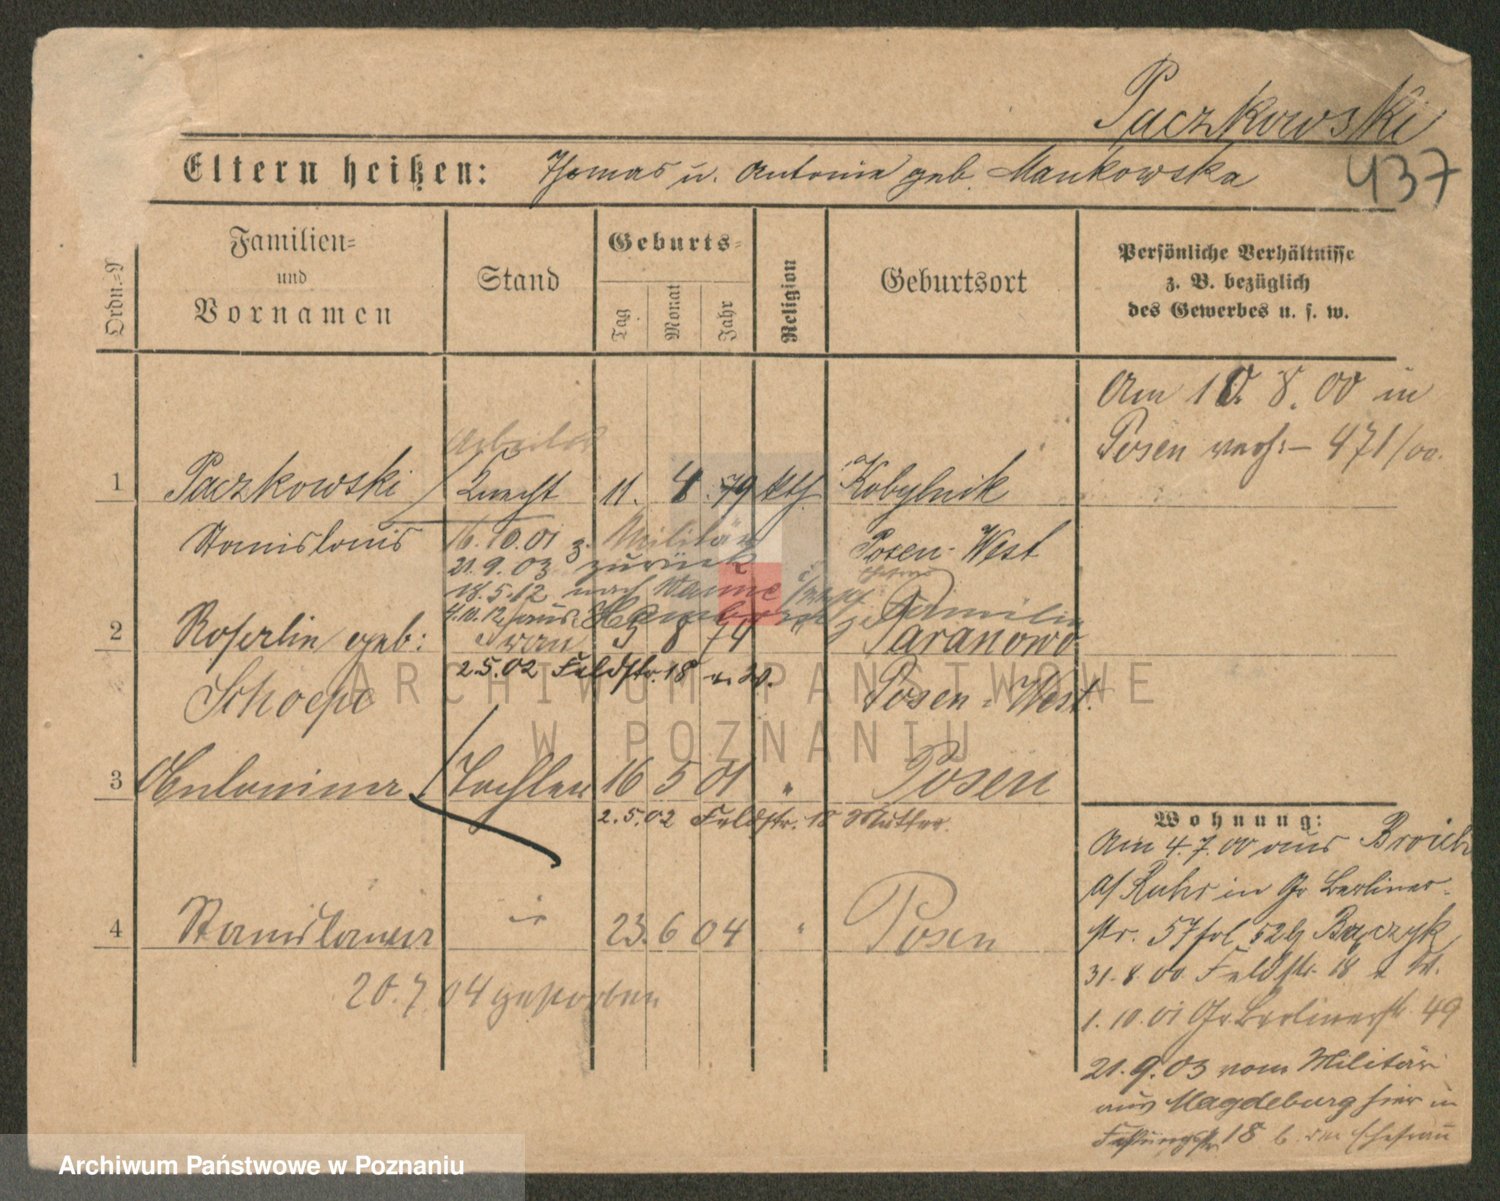 Paczkowski
Eltern heißen: Thomas u. Antonie geb. Mankowska
437
Ordn.=
Familien=
und
Vornamen
Stand
Geburts=
Tag
Monat
Jahr
Religion
Geburtsort
Persönliche Verhältnisse
z. B. bezüglich
des Gewerbes u. s. w.
Am 10. 8. 00 in
Posen verh: 471/00.
Arbeiter
1 Paczkowski Knecht 11. 4. 79 kth Kobylnik
Stanislaus 16.10.01 z. Militär Posen-West
21.9.03 zurück
18.5.12 nach Wanne
Ehefrau
4.10.12 aus Familie
2 Roserlin geb: Frau 5 8 74 " Paranowo
2.5.02 Feldstr. 18 u. W.
Schoepe Posen-West.
3 Antonina Tochter 16 5 01 " Posen
2.5.02 Feldstr. 18 Mutter.
4 Stanislawa 23. 6 04 " Posen
20.7.04 gestorben
Wohnung:
Am 4.7.00 aus Broich
a/ Ruhr in Gr Berliner-
str. 57 bei Baczyk
31.8.00 Feldstr. 18 u. W.
1.10.01 Gr Berlinerstr 49
21.9.03 vom Militär
aus Magdeburg hier in
18 b. der Ehefrau
ARCHIWUM PAŃSTWOWE
W POZNANIU
Archiwum Państwowe w Poznaniu